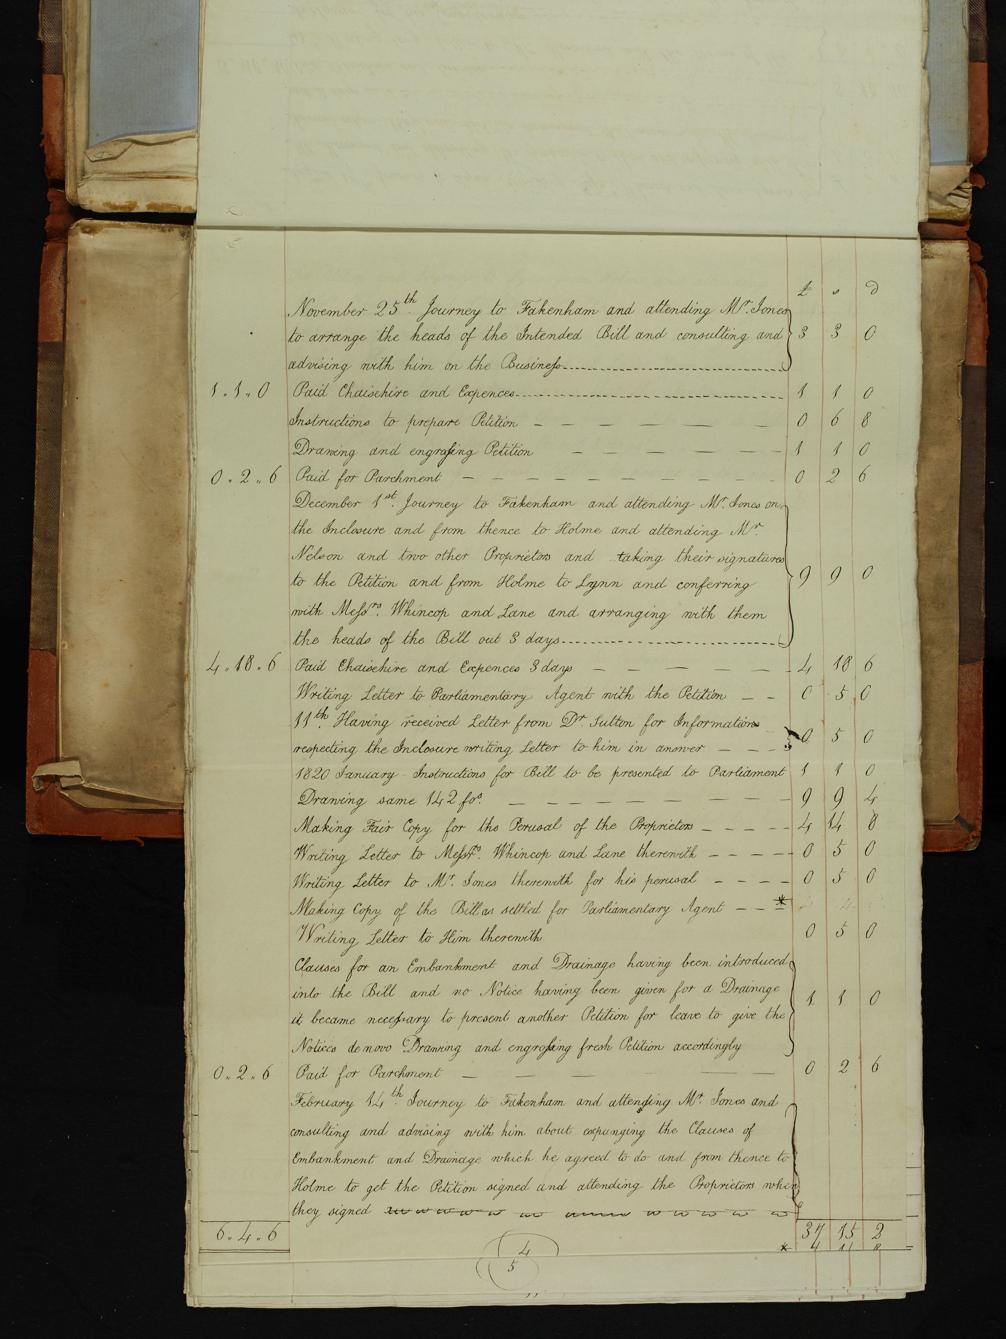 £ s D
November 25th Journey to Fakenham and attending Mr. Jones
to arrange the heads of the Intended Bill and consulting and 3 3 0
advising with him on the Business
1.1.0 Paid Chaisehire and Expences 1 1 0
Instructions to prepare Petition 0 6 8
Drawing and engrossing Petition 1 1 0
0.2.6 Paid for Parchment 0 2 6
December 1st. Journey to Fakenham and attending Mr. Jones on
the Inclosure and from thence to Holme and attending Mr.
Nelson and two other Proprietors and taking their signatures
to the Petition and from Holme to Lynn and conferring 9 9 0
with Messrs. Whincop and Lane and arranging with them
the heads of the Bill out 3 days
4.18.6 Paid Chaisehire and Expences 3 days 4 18 6
Writing Letter to Parliamentary Agent with the Petition 0 5 0
11th. Having received Letter from Dr. Sutton for Information
respecting the Inclosure writing Letter to him in answer 0 5 0
1820 January Instructions for Bill to be presented to Parliament 1 1 0
Drawing same 142 fos. 9 9 4
Making Fair Copy for the Perusal of the Proprietors 4 14 8
Writing Letter to Messrs. Whincop and Lane therewith 0 5 0
Writing Letter to Mr. Jones therewith for his perusal 0 5 0
Making Copy of the Bill as settled for Parliamentary Agent *
Writing Letter to Him therewith 0 5 0
Clauses for an Embankment and Drainage having been introduced
into the Bill and no Notice having been given for a Drainage 1 1 0
it became necessary to present another Petition for leave to give the
Notices de novo Drawing and engrossing fresh Petition accordingly
0.2.6 Paid for Parchment 0 2 6
February 14th Journey to Fakenham and attending Mr. Jones and
consulting and advising with him about expunging the Clauses of
Embankment and Drainage which he agreed to do and from thence to
Holme to get the Petition signed and attending the Proprietors when
they signed
6.4.6 37 15 2
4
5